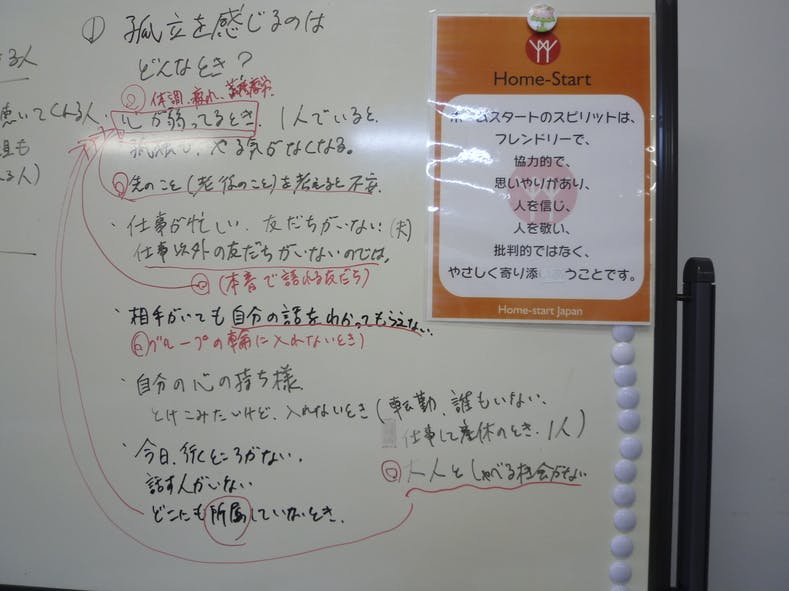 ① 孤立を感じるのは
どんなとき？
体調、疲れ、
心が弱ってるとき、1人でいると、
孤独で、やる気がなくなる。
先のこと(老後のこと)を考えると不安
・仕事が忙しい、友だちがいない(夫)
仕事以外の友だちがいないのでは、
(本音で語れる友だち)
・相手がいても自分の話をわかってもらえない
グループの輪に入れないとき)
・自分の心の持ち様
とけこみたいけど、入れないとき(転勤、誰もいない、
仕事して産休のとき、1人)
・今日、行くところがない、
話す人がいない
大人としゃべる機会がない
どこにも所属していないとき、
る人
聴いてくれる人
理も
る人)
Home-Start
ホームスタートのスピリットは、
フレンドリーで、
協力的で、
思いやりがあり、
人を信じ、
人を敬い、
批判的ではなく、
やさしく寄り添うことです。
Home-start Japan